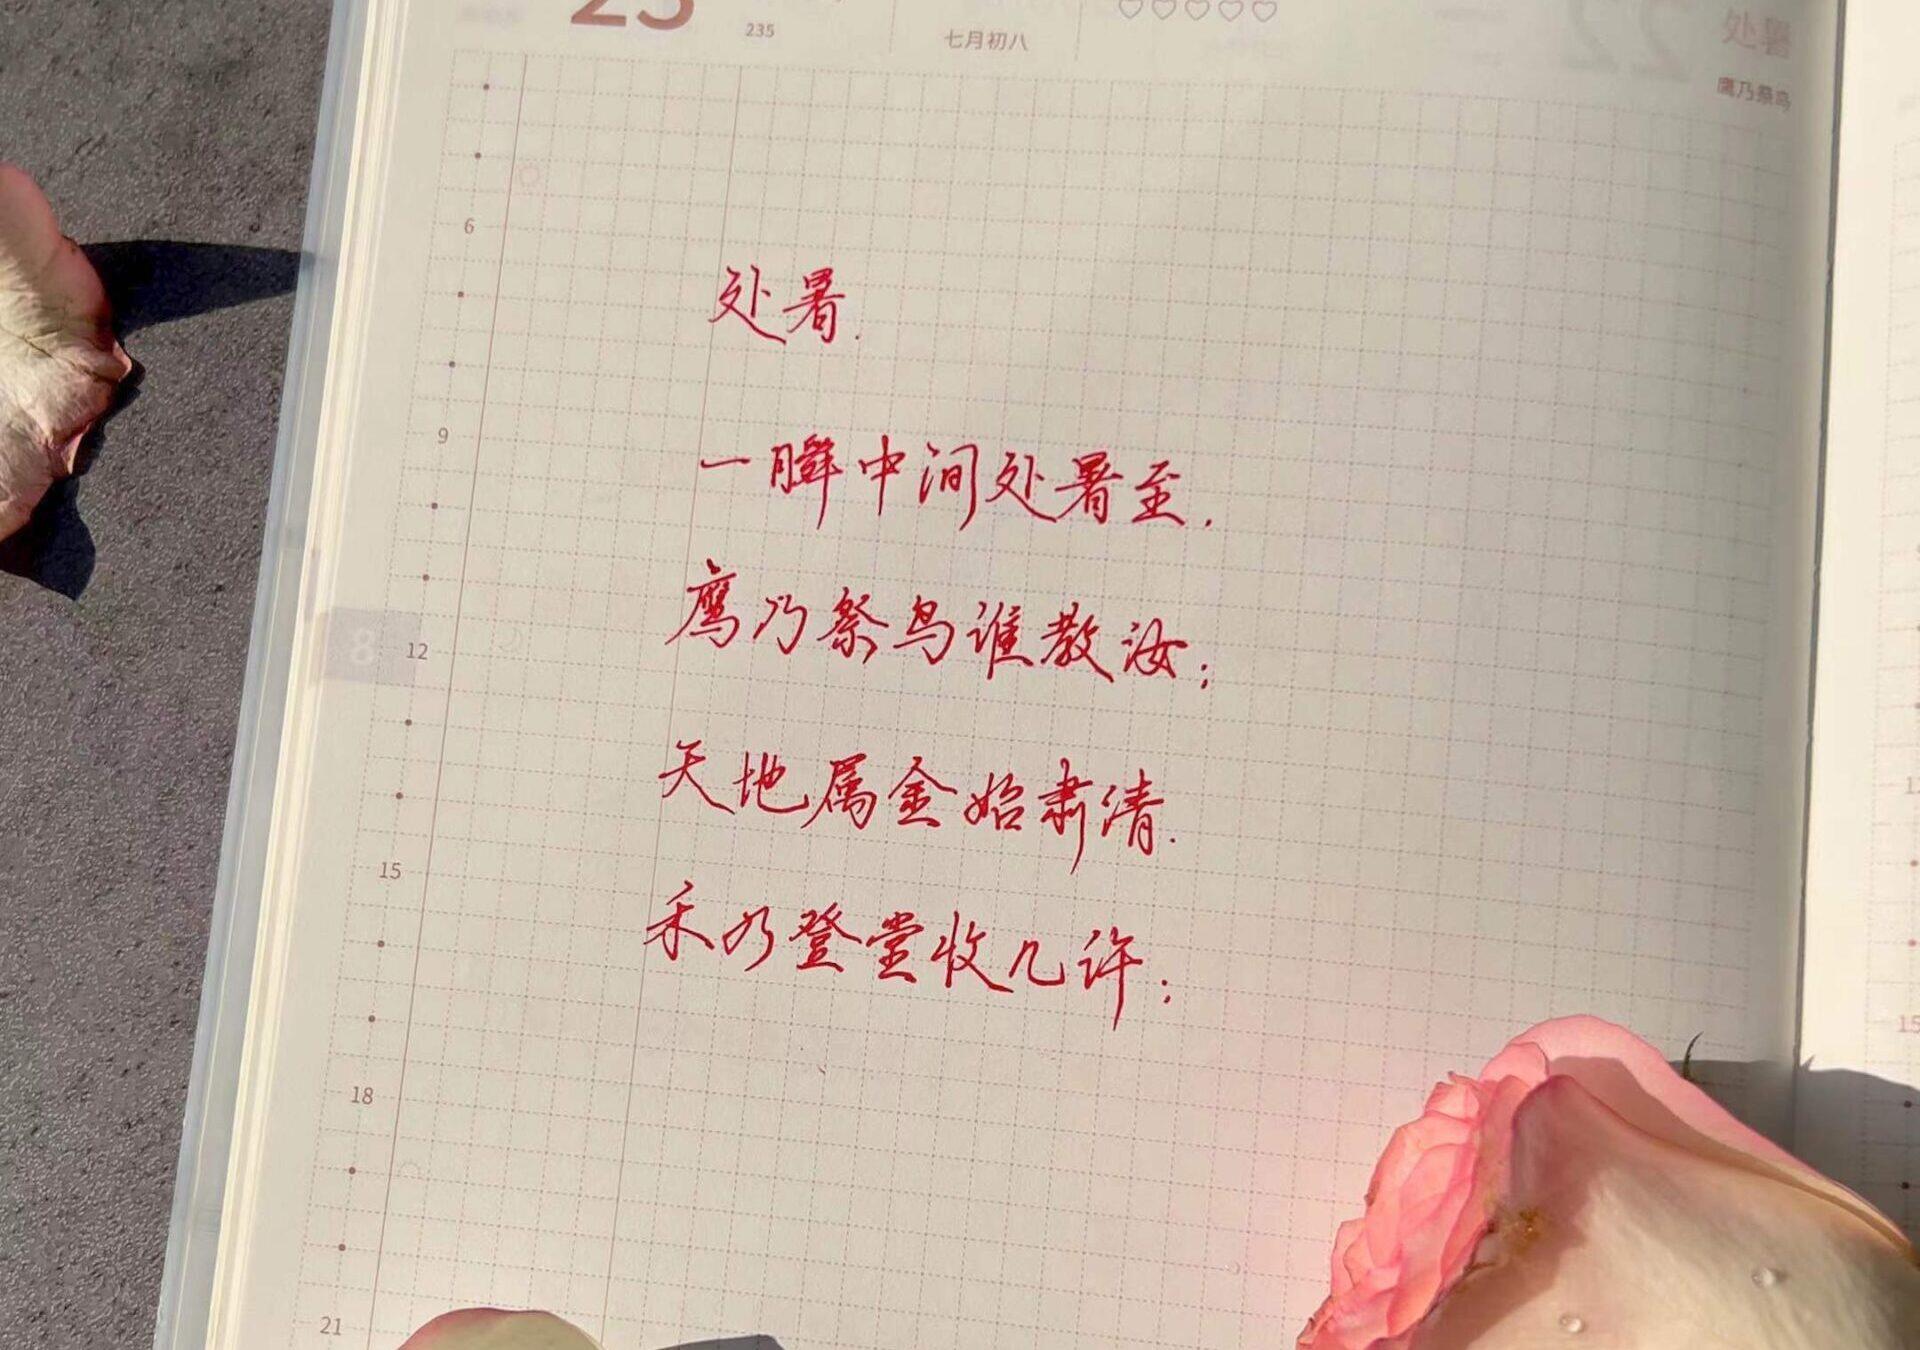 23
235
七月初八
处暑
鹰乃祭鸟
处暑.
一瞬中间处暑至.
鹰乃祭鸟谁教汝;
天地属金始肃清.
禾乃登堂收几许;
6
9
8
12
15
18
21
15